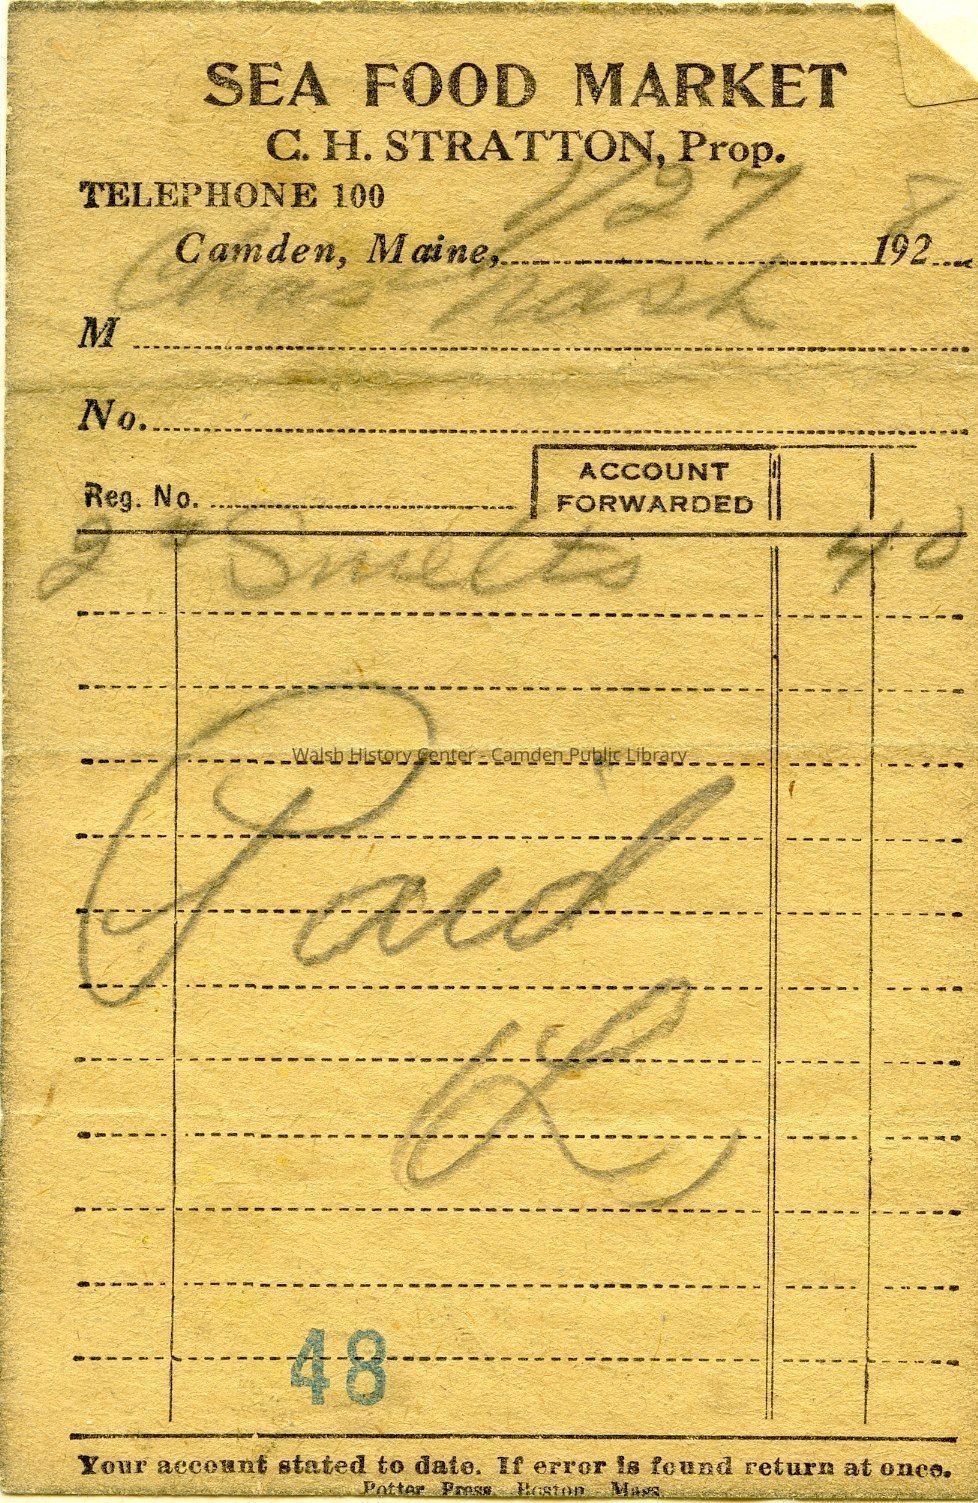 SEA FOOD MARKET
C. H. STRATTON, Prop.
TELEPHONE 100
Camden, Maine, 1/27 1928
M Chas Nash
No.
Reg. No. ACCOUNT FORWARDED
2 # Smelts 40
Walsh History Center - Camden Public Library
Paid
48
Your account stated to date. If error is found return at once.
Potter Press Boston Mass